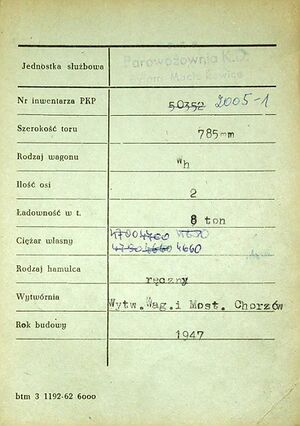 Parowozownia K.D.
Jednostka służbowa
Nr inwentarza PKP 50352 2005-1
Szerokość toru 785mm
Rodzaj wagonu Wh
Ilość osi 2
Ładowność w t. 8 ton
Ciężar własny 4700 4760
4660 4660
Rodzaj hamulca ręczny
Wytwórnia Wytw.Wag.i Most. Chorzów
Rok budowy 1947
btm 3 1192-62 6000